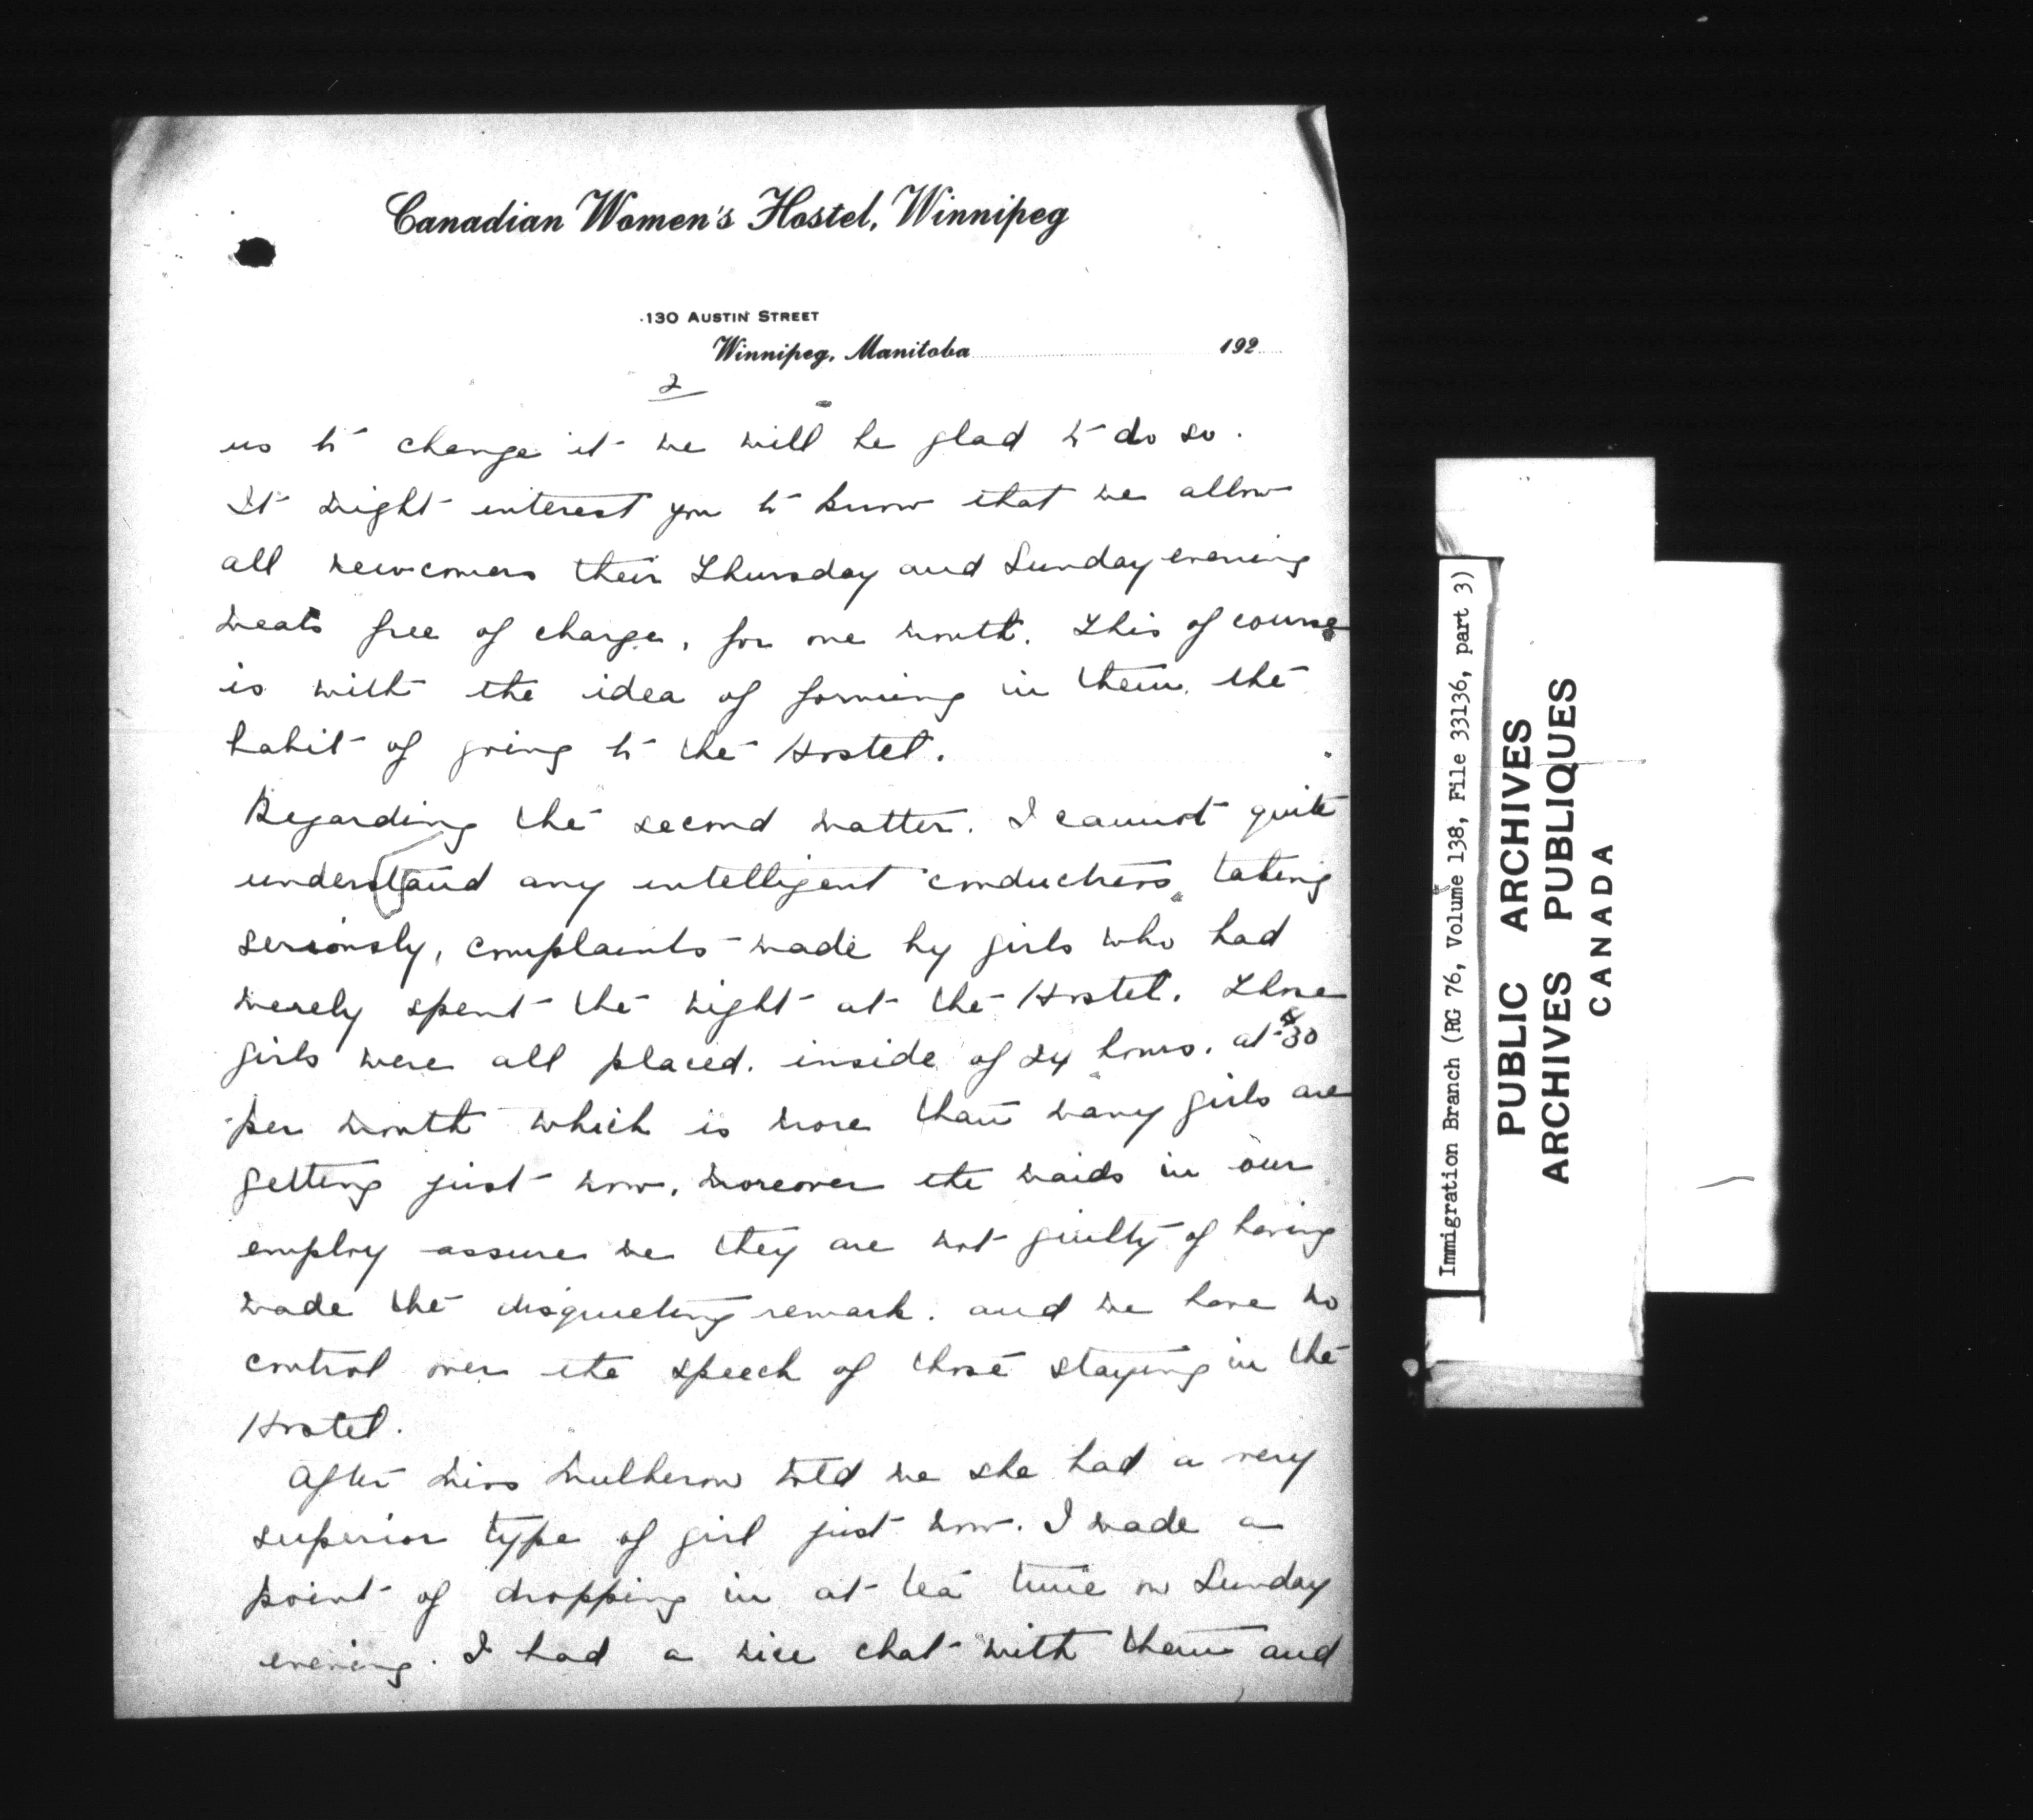 Canadian Women's Hostel, Winnipeg
130 AUSTIN STREET
Winnipeg, Manitoba 192
2
us to change it we will be glad to do so.
It might interest you to know that we allow
all newcomers their Thursday and Sunday evening
meals free of charge, for one month. This of course
is with the idea of forming in them the
habit of going to the Hostel.
Regarding the second matter. I cannot quite
understand any intelligent conductress taking
seriously, complaints made by girls who had
merely spent the night at the Hostel. Those
girls were all placed. inside of 24 hours. at $30
per month which is more than many girls are
getting just now, moreover the maids in our
employ assure me they are not guilty of having
made the disquieting remark. and we have no
control over the speech of those staying in the
Hostel.
After Miss told me she had a very
superior type of girl just now. I made a
point of dropping in at tea time on Sunday
evening. I had a nice chat with them and
Immigration Branch (RG 76, Volume 138, File 33136, part 3)
PUBLIC ARCHIVES
ARCHIVES PUBLIQUES
CANADA